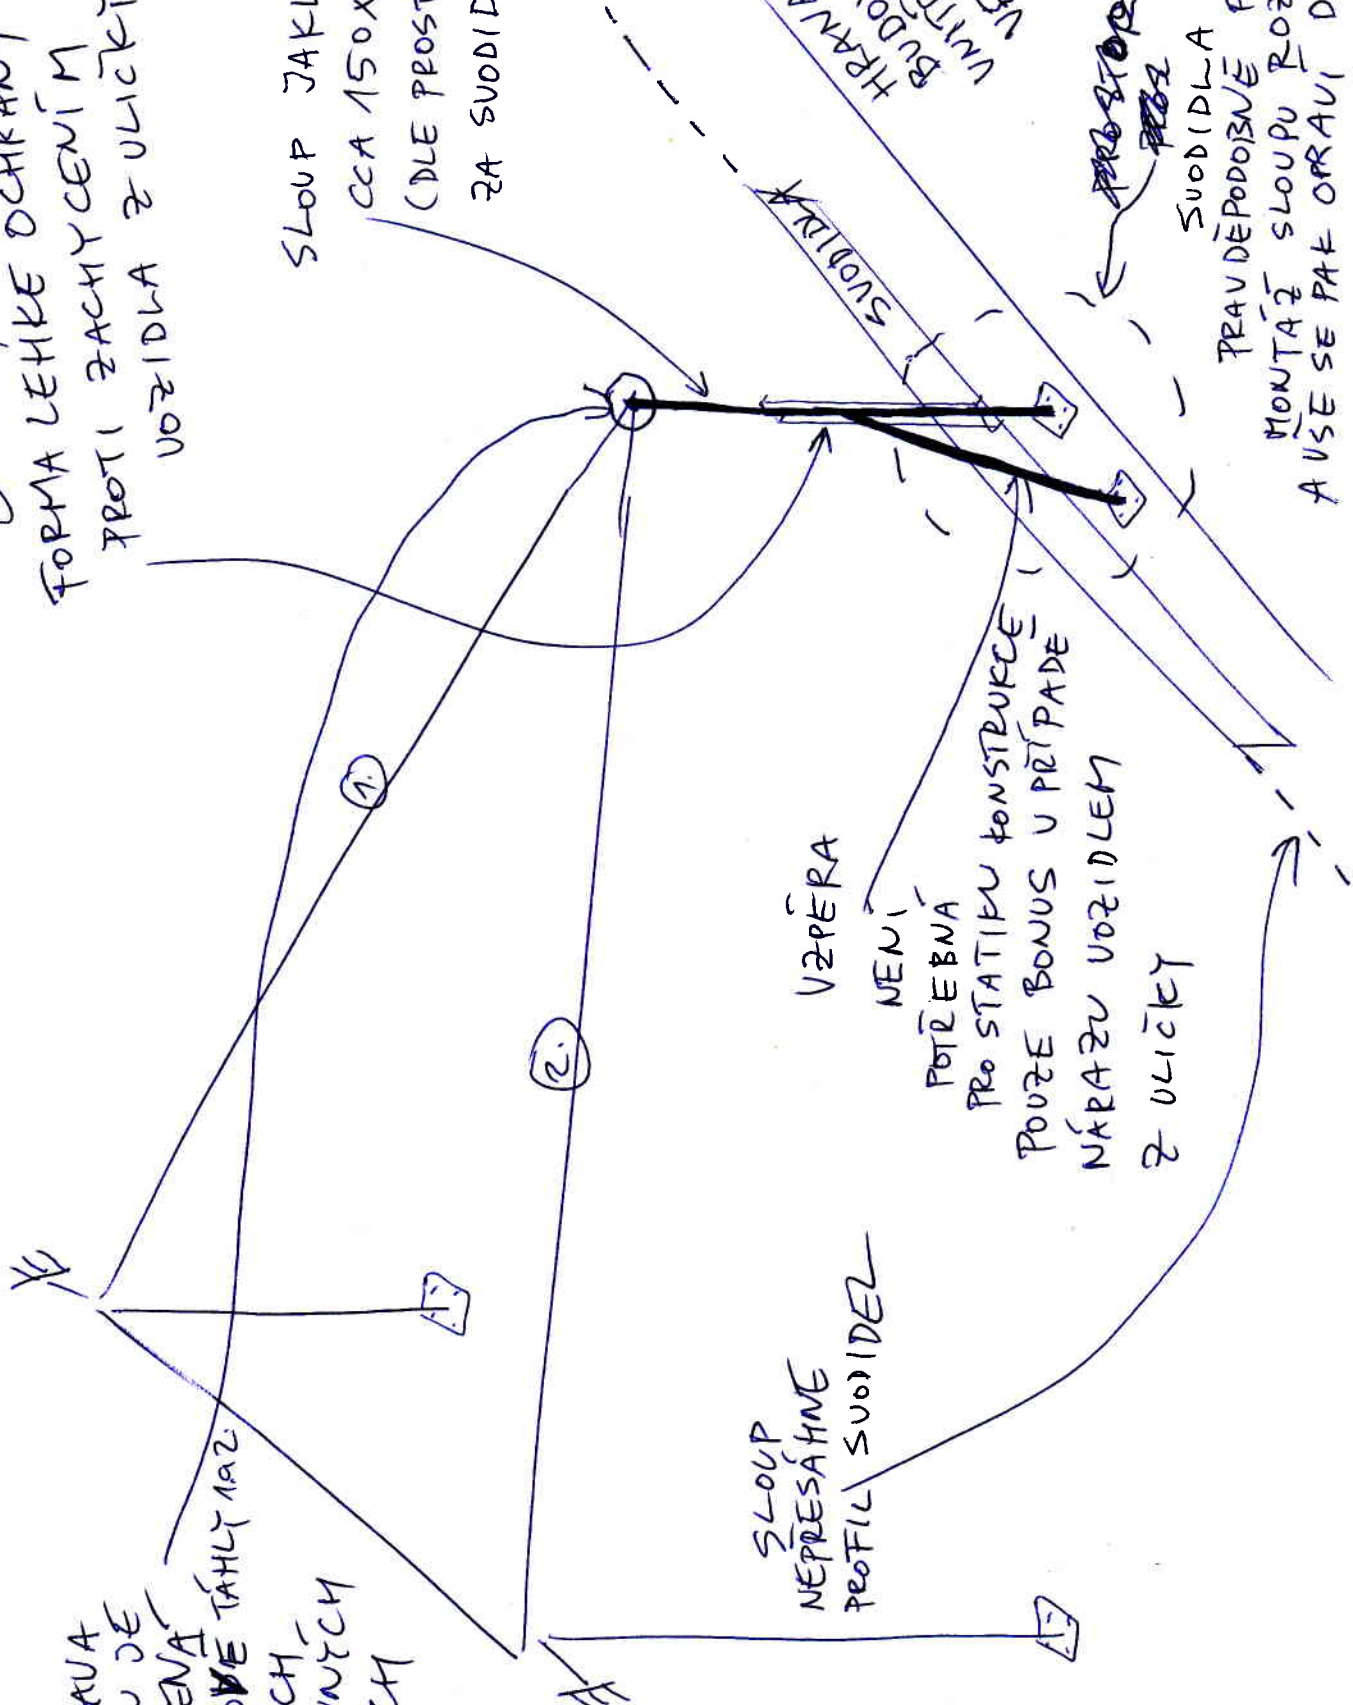 FORMA LEHKÉ OCHRANY
PROTI ZACHYCENÍM
VOZIDLA Z ULIČKY
SLOUP JAKL
CCA 150x
(DLE PROST
ZA SVODID
HRANA
BUDO
VNITŘ
SVODIDLA
SVODIDLA
PRAVDĚPODOBNĚ
MONTÁŽ SLOUPU ROZ
A VŠE SE PAK OPRAVÍ D
1.
2.
VZPĚRA
NENÍ
POTŘEBNÁ
PRO STATIKU KONSTRUKCE
POUZE BONUS V PŘÍPADĚ
NÁRAZU VOZIDLEM
Z ULIČKY
SLOUP
NEPŘESÁHNE
PROFIL SVODIDEL
AVA
U JE
ENÁ
TÁHLY 1 a 2.
CH
NÝCH
CH